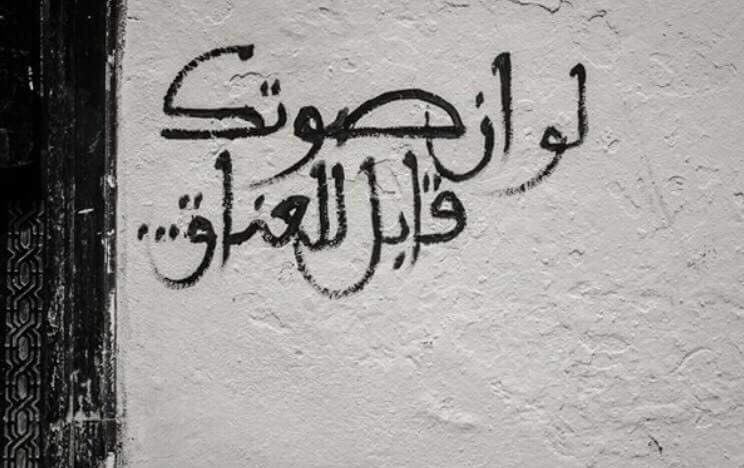 لو ان صوتك
قابل للعناق...